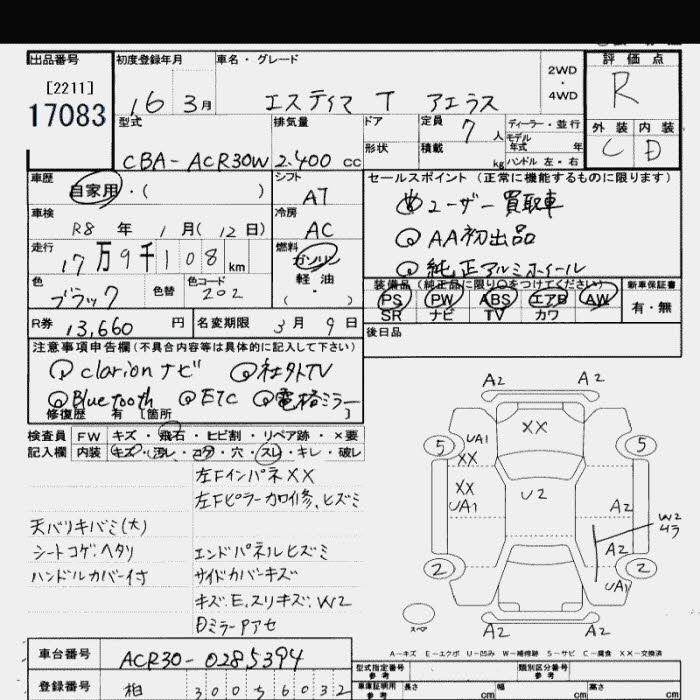 出品番号
[2211]
17083
初度登録年月
16 3月
車名・グレード
エスティマ T アエラス
2WD
・
4WD
評価点
R
外装 内装
C D
型式
CBA-ACR30W
排気量
2.400 cc
ドア
形状
定員 7 人
積載 kg
ディーラー・並行
モデル年式 年
ハンドル 左・右
車歴
自家用・( )
シフト
AT
車検
R8 年 1 月(12日)
冷房
AC
走行
17万9千108 km
燃料
ガソリン
軽油
( )
色
ブラック
色替
色コード
202
R券 13,660 円
名変期限 3月9日
セールスポイント(正常に機能するものに限ります)
ユーザー買取車
AA初出品
純正アルミホイール
装備品(純正品に限り○をつけてください)
PS PW ABS エアB AW
SR ナビ TV カワ
新車保証書
有・無
後日品
注意事項申告欄(不具合内容等は具体的に記入して下さい)
clarionナビ 社外TV
Bluetooth ETC 電格ミラー
修復歴 有 [箇所 ]
検査員 FW キズ・飛石・ヒビ割・リペア跡・×要
記入欄 内装 キズ・汚レ・コゲ・穴・スレ・キレ・破レ
左FインパネXX
左Fピラーカワイ修、ヒズミ
天バリキバミ(大)
シートコゲ、ヘタリ
エンドパネルヒズミ
ハンドルカバー付
サイドカバーキズ
キズ、E、スリキズ、W2
Dミラーアセ
車台番号 ACR30-0285394
登録番号 柏 300 5 6032
A2 A2
XX
5 UA1 5
XX
XX
UA1
U2
A2
W2
ムラ
A2
2 2
UA1
スペア
A2 A2
A-キズ E-エクボ U-凹み W-補修跡 S-サビ C-腐食 XX-交換済
型式指定番号
参考
類別区分番号
参考
車庫証明用
参考
長さ cm
幅 cm
高さ cm